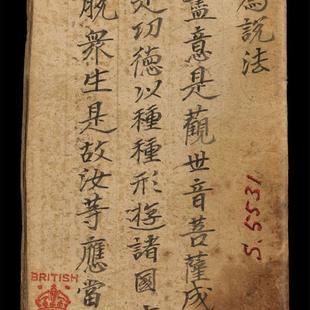 為說法
盡意是觀世音菩薩成
是功德以種種形遊諸國土
脫眾生是故汝等應當
S.5531
BRITISH